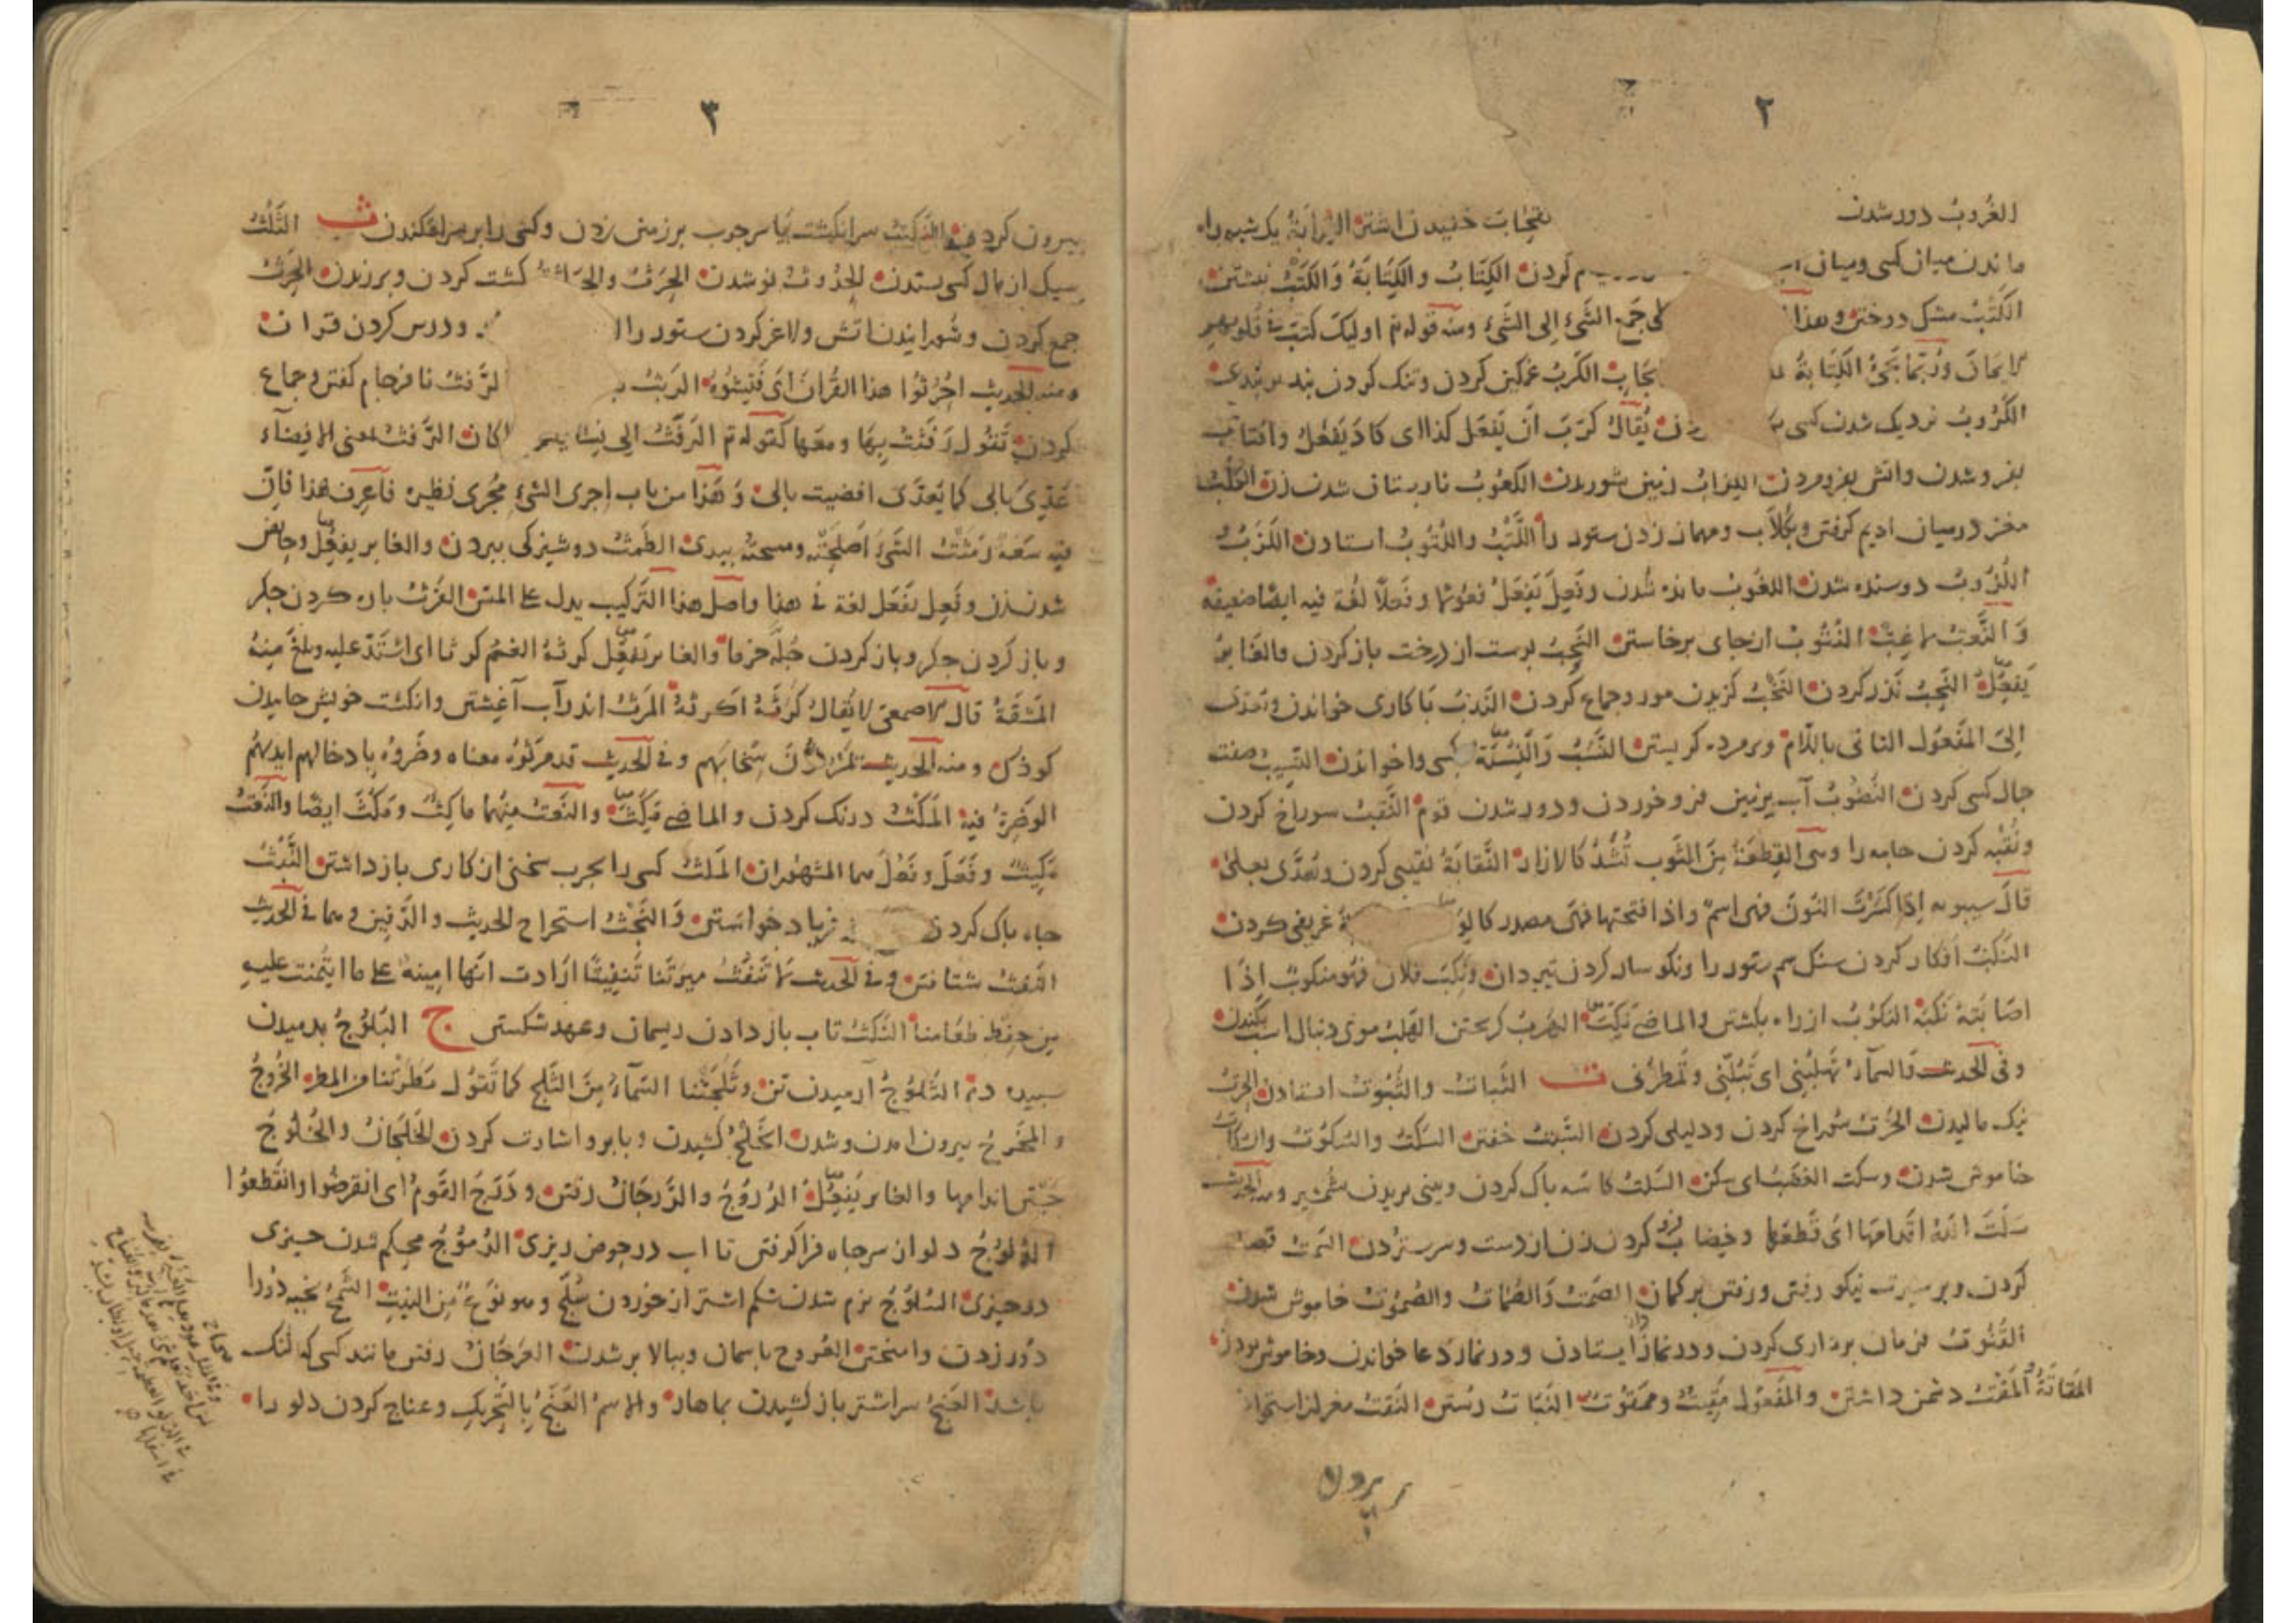 ٢
الغُروبُ دور شدن
ماندن میان کسی ومیان کردن الکِتَابُ والکِتَابَةُ وَالکَتْبُ نبشتن
الکَتْبُ مشک دوختن وهذا جَمع الشَّیْءِ اِلی الشَّیْءِ ومنه قوله تم اولیک کتب فی قلوبهم
الایمانَ وَرُبَّمَا یَجِیُٔ الکِتَابَةُ الکَرْبُ غمکین کردن وتنک کردن بند بر بندی
الکُرُوبُ نزدیک شدن کسی یُقَالُ کَرَبَ اَنْ یَفْعَل کذا ای کادَ یَفْعَلُ وافتاب
بفرو شدن واتش بفرومردن زمین شوریدن الکعُوبُ نارپستان شدن زن الکَلْبُ
مغز درمیان ادیم کرفتن وبکُلّاب ومهماز زدن ستور را اللَّتْبُ واللُّتُوبُ استادن اللَّزَبُ و
اللُّزُوبُ دوسنده شدن اللغُوبُ مانده شدن وفَعِلَ یَفْعَلُ فعُولًا وفَعَلًا لغة فیه ایضًا ضعیفه
وَالنَّعتُ لاغِبٌ النُّتُوبُ ازجای برخاستن النَّجْبُ پوست از درخت باز کردن والغَابِرُ
یَفعِلُ النَّحبُ نذر کردن النَّخْبُ کزیدن مورد وجماع کردن النَّدبُ با کاری خواندن وتعدی
اِلَی المَفْعُول الثانی باللّام وبرمرده کریستن النَّسَبُ وَالنِّسْبَةُ کسی واخواندن النَّسِیبُ صفت
جمال کسی کردن النُّضُوبُ آب بزمین فرو خوردن ودور شدن قوم النَّقبُ سوراخ کردن
ونُقْبَه کردن جامه را وهی القِطْعَةُ مِنَ الثَّوبِ تُشَدُّ کالازار النَّقابَةُ نقیبی کردن وتُعَدَّی بعلی
قالَ سیبویه اِذَا کَسَرْتَ النونَ فهی اسمٌ واذا فتحتها فهی مصدر عریفی کردن
النَّکبُ افکار کردن سنک سم ستور را ونکوسار کردن تیردان ونُکِبَ فلان فهو منکوبٌ اِذَا
اصَابَتْهُ نَکْبَة النکوبُ از راه بکشتن والماضی نَکِبَ الهَربُ کریختن الهَلبُ موی دنبال اسب بکندن
وفی الحدیث وَالسمآءُ تَهْلُبُنِی ای تَبُلُّنِی وتُمْطِرُنی ت الثَّبات والثُّبُوت استادن الحَرتُ
نیک مالیدن الخَرت سُوراخ کردن ودلیلی کردن السَّبتُ خفتن السَّکتُ والسُّکُوتُ والسُّکاتُ
خاموش شدن وسکت الغضَبُ ای سکن السَّلتُ کاسه باک کردن وبینی بریدن بشمشیر ومنه الحدیث
سَلَتَ اللّهُ اَقدامَهَا ایْ قَطَعَهَا وخِضاب کردن زن از دست وسر ستردن السَّمتُ قصد
کردن وبر سیرت نیکو رفتن ورفتن بر کمان الصَمتُ وَالصُّمَاتُ والصُّمُوتُ خاموش شدن
القُنُوتُ فرمان برداری کردن ودرنماز ایستادن ودرنماز دعا خواندن وخاموش بودن
المَقَاتَةُ المَقْتُ دشمن داشتن والمَفْعُول مَقِیتٌ وممقوُتٌ النَّبَاتُ رُستن النَّقتُ مغز از استخوان
بیرون
٣
بیرون کردن النَّکتُ سر انکشت یَا سرجوب بر زمین زدن وکسی را بر سر افکندن ث الثَّلْثُ
سیک از مال کسی بستدن الحُدُوثُ نو شدن الحَرْثُ والحِرَاثَةُ کشت کردن وبرزیدن الحَرْثُ
جمع کردن وشورانیدن اتش ولاغر کردن ستور را ودرس کردن قران
ومنه الحدیث اُحْرُثُوا هذا القُرانَ ایْ فَتِّشُوهُ الرَبثُ الرَّفثُ نافرجام کفتن وجماع
کردن تَقُول رَفَثَ بِهَا ومعَها کقوله تم الرَفَثُ الی نِسَایِکم کان الرَّفثُ بمعنی الافضآء
عُدِّیَ بالی کما یُعَدَّی افضیت بالی وَهَذا من باب اجری الشیء مُجْری نظیره فاَعرف هذا فاِنّ
فیه سَعَةً رَمَثْتُ الشَّیْءَ اَصْلَحْتُهُ ومسحتهُ بیدی الطَمْثُ دوشیزکی ببردن والغابر یفعُِل وحایض
شدن زن وفَعِل یَفْعَل لغة فی هذا واَصل هذا التَرکیب یدل علی المسّ الفَرْثُ باره کردن جکر
وباز کردن جکر وباز کردن جُلَّه خرما والغابر یَفعُِل کرثهُ الغمّ کرثا ای اشْتَدّ علیه وبلغَ مِنهُ
المَشَقَةُ قالَ الاصمعی لایُقالُ کَرَثَهُ اَکرثهُ المَرثُ اندر آب آغشتن وانکشت خویش خاییدن
کودک ومنه الحدیث سِخابَهم وفی الحدیث قد مرثوه معناه وضروه بادخالهم ایدیهم
الوَضِرَةُ فیه المَکْثُ درنک کردن والماضی مَکثَ والنعتُ مِنهُما مَاکِثٌ ومَکُثَ ایضًا والنعتُ
مَکِیثٌ وفَعَلَ وفَعُلَ هما المشهوران المَلثُ کسی را بجرب سخنی از کاری باز داشتن النَّبْثُ
جاه باک کردن فریاد خواستن وَالنَّجْثُ استخراج الحدیث والدَّفین ومما فی الحدیث
النَّقثُ شتافتن وفی الحدیث لَا تُنَقِّثُ میرَتَنا تَنْقِیثًا اَرَادت انّها امینه علی ما ایتُمِنت علیه
مِن حِفظ طَعامنا النَّکثُ تاب باز دادن ریسمان وعهد شکستن ج البُلُوجُ بدمیدن
سبیده دم الثُّلُوجُ آرمیدن تن وثَلَجَتْنا السَّمآءُ مِنَ الثَّلج کما تَقُول مَطَرَتْنا من المطر الخُرُوجُ
والمَخْرجُ بیرون امدن وشدن الخَلجُ کشیدن وبابرو اشارت کردن الخَلَجَانُ والخُلُوجُ
جَستن اندامها والغابر یَفعِلُ الدُرُوجُ والدَّرجَانُ رفتن ودَرَجَ القَومُ ای انقرضُوا وانقَطعوُا
الدُلوُجُ دلو از سرجاه فرا کرفتن تا اب در حوض ریزی الدُمُوجُ محکم شدن چیزی
درچیزی السُلوُجُ نرم شدن شکم اشتر از خوردن سُلَّج وهو نَوْعٌ مِنَ النبتِ الشَّمجُ بخیه دُورا
دُور زدن وامیختن العُروجُ باسمان وببالا بر شدن العَرَجَانُ رفتن مانند کسی که لنک
باشد العَنجُ سر اشتر باز کشیدن بماهار والاسمُ العَنَجُ بِالتَّحریکِ وعناج کردن دلو را
صحاح